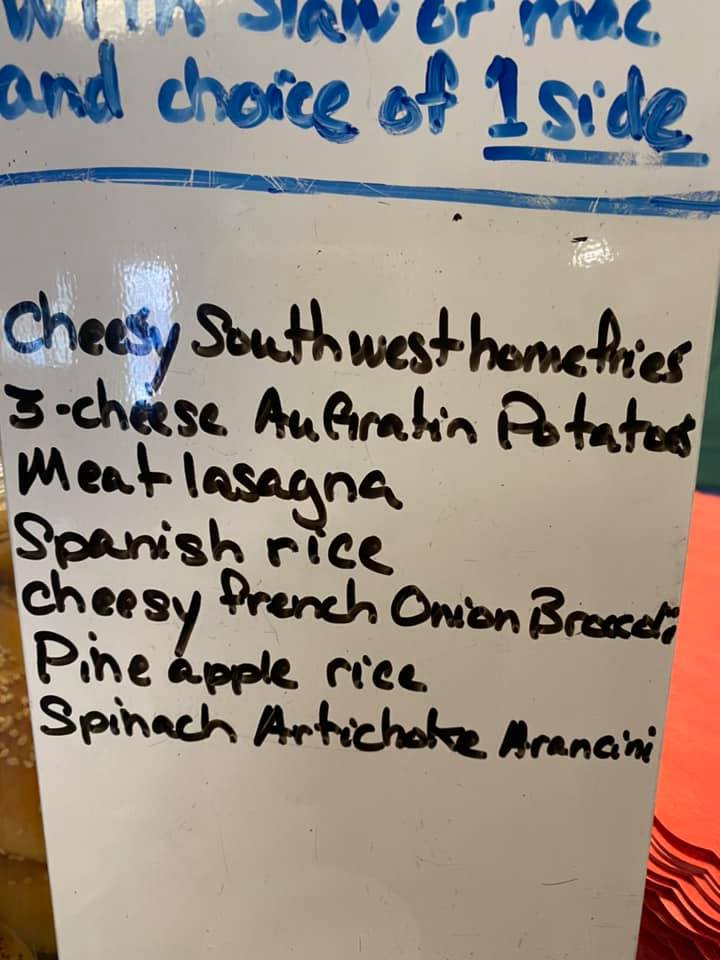 with slaw or mac
and choice of 1 side
Cheesy Southwest homefries
3-cheese Au Gratin Potatoes
Meat lasagna
Spanish rice
Cheesy french Onion Broccoli
Pineapple rice
Spinach Artichoke Arancini